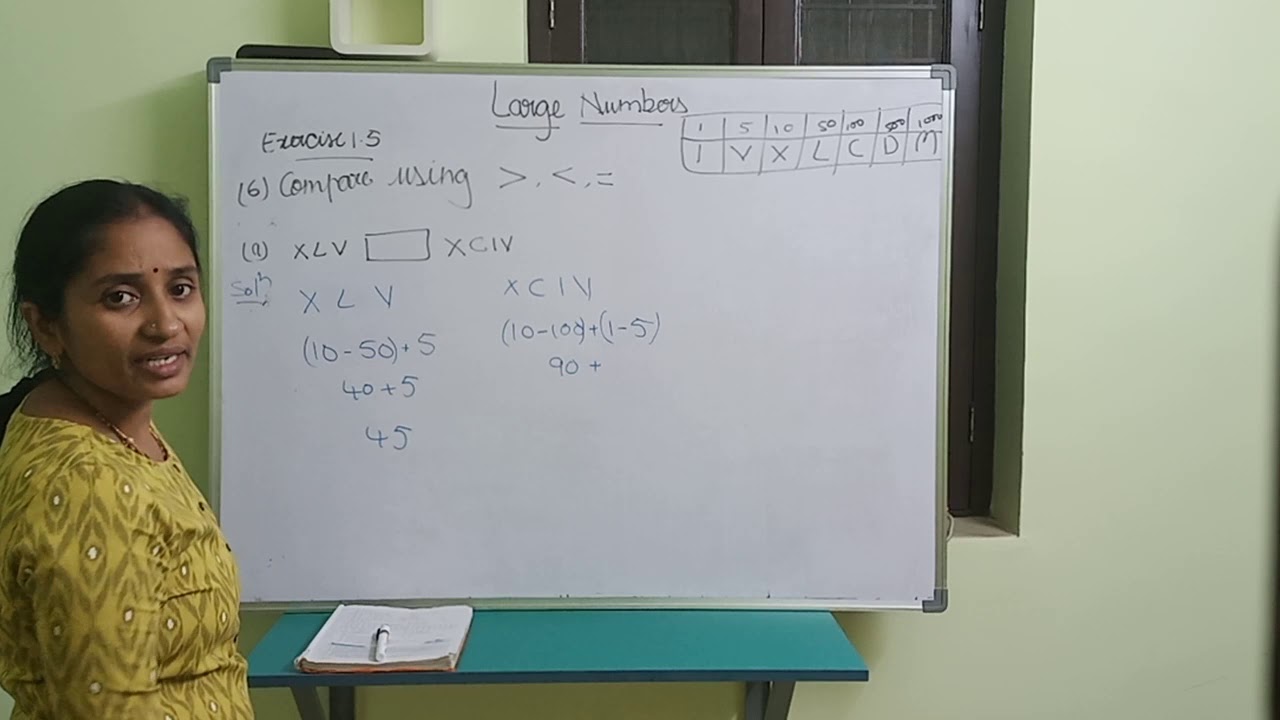 Large Numbers
1 5 10 50 100 500 1000
I V X L C D M
Exercise 1.5
(6) Compare using >, <, =
(a) XLV □ XCIV
Solⁿ:
X L V
X C I V
(10-50)+5
(10-100)+(1-5)
40+5
90+
45